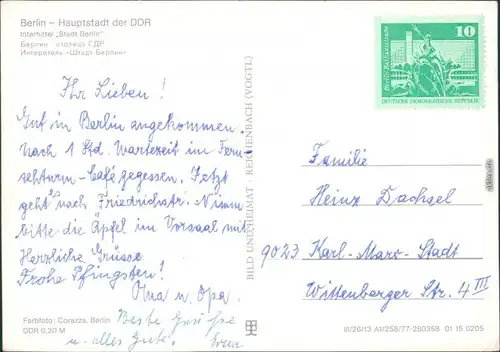 Berlin – Hauptstadt der DDR
Interhotel „Stadt Berlin“
Берлин столица ГДР
Интеротель «Штадт Берлин»
Ihr Lieben!
Gut in Berlin angekommen.
Nach 1 Std. Wartezeit im Fern
sehturm-Café gegessen. Jetzt
geht's nach Friedrichstr. Nimm
bitte die Äpfel im Vorsaal mit
Herzliche Grüsse
Frohe Pfingsten!
Oma u. Opa.
Beste Grüße
u. alles Gute.
Farbfoto: Corazza, Berlin
DDR 0,20 M
BILD UND HEIMAT · REICHENBACH (VOGTL)
10
Berlin Rathausstraße
DEUTSCHE DEMOKRATISCHE REPUBLIK
Familie
Heinz Dachsel
9023 Karl-Marx-Stadt
Wittenberger Str. 4 III
III/26/13 A1/258/77-280358 01 15 0205